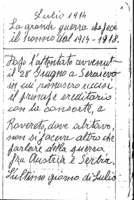 Luglio 1914
La grande guerra
il nonno dal 1914-1918.
Dopo l'attentato avvenuto
il 28 Giugno a Saraievo
in cui passero uccisi
il principe ereditario
con la consorte, a
Rovereto, dove abitavo,
non si faceva altro che
parlare della guerra
fra Austria e Serbia.
L'ultimo giorno di Luglio